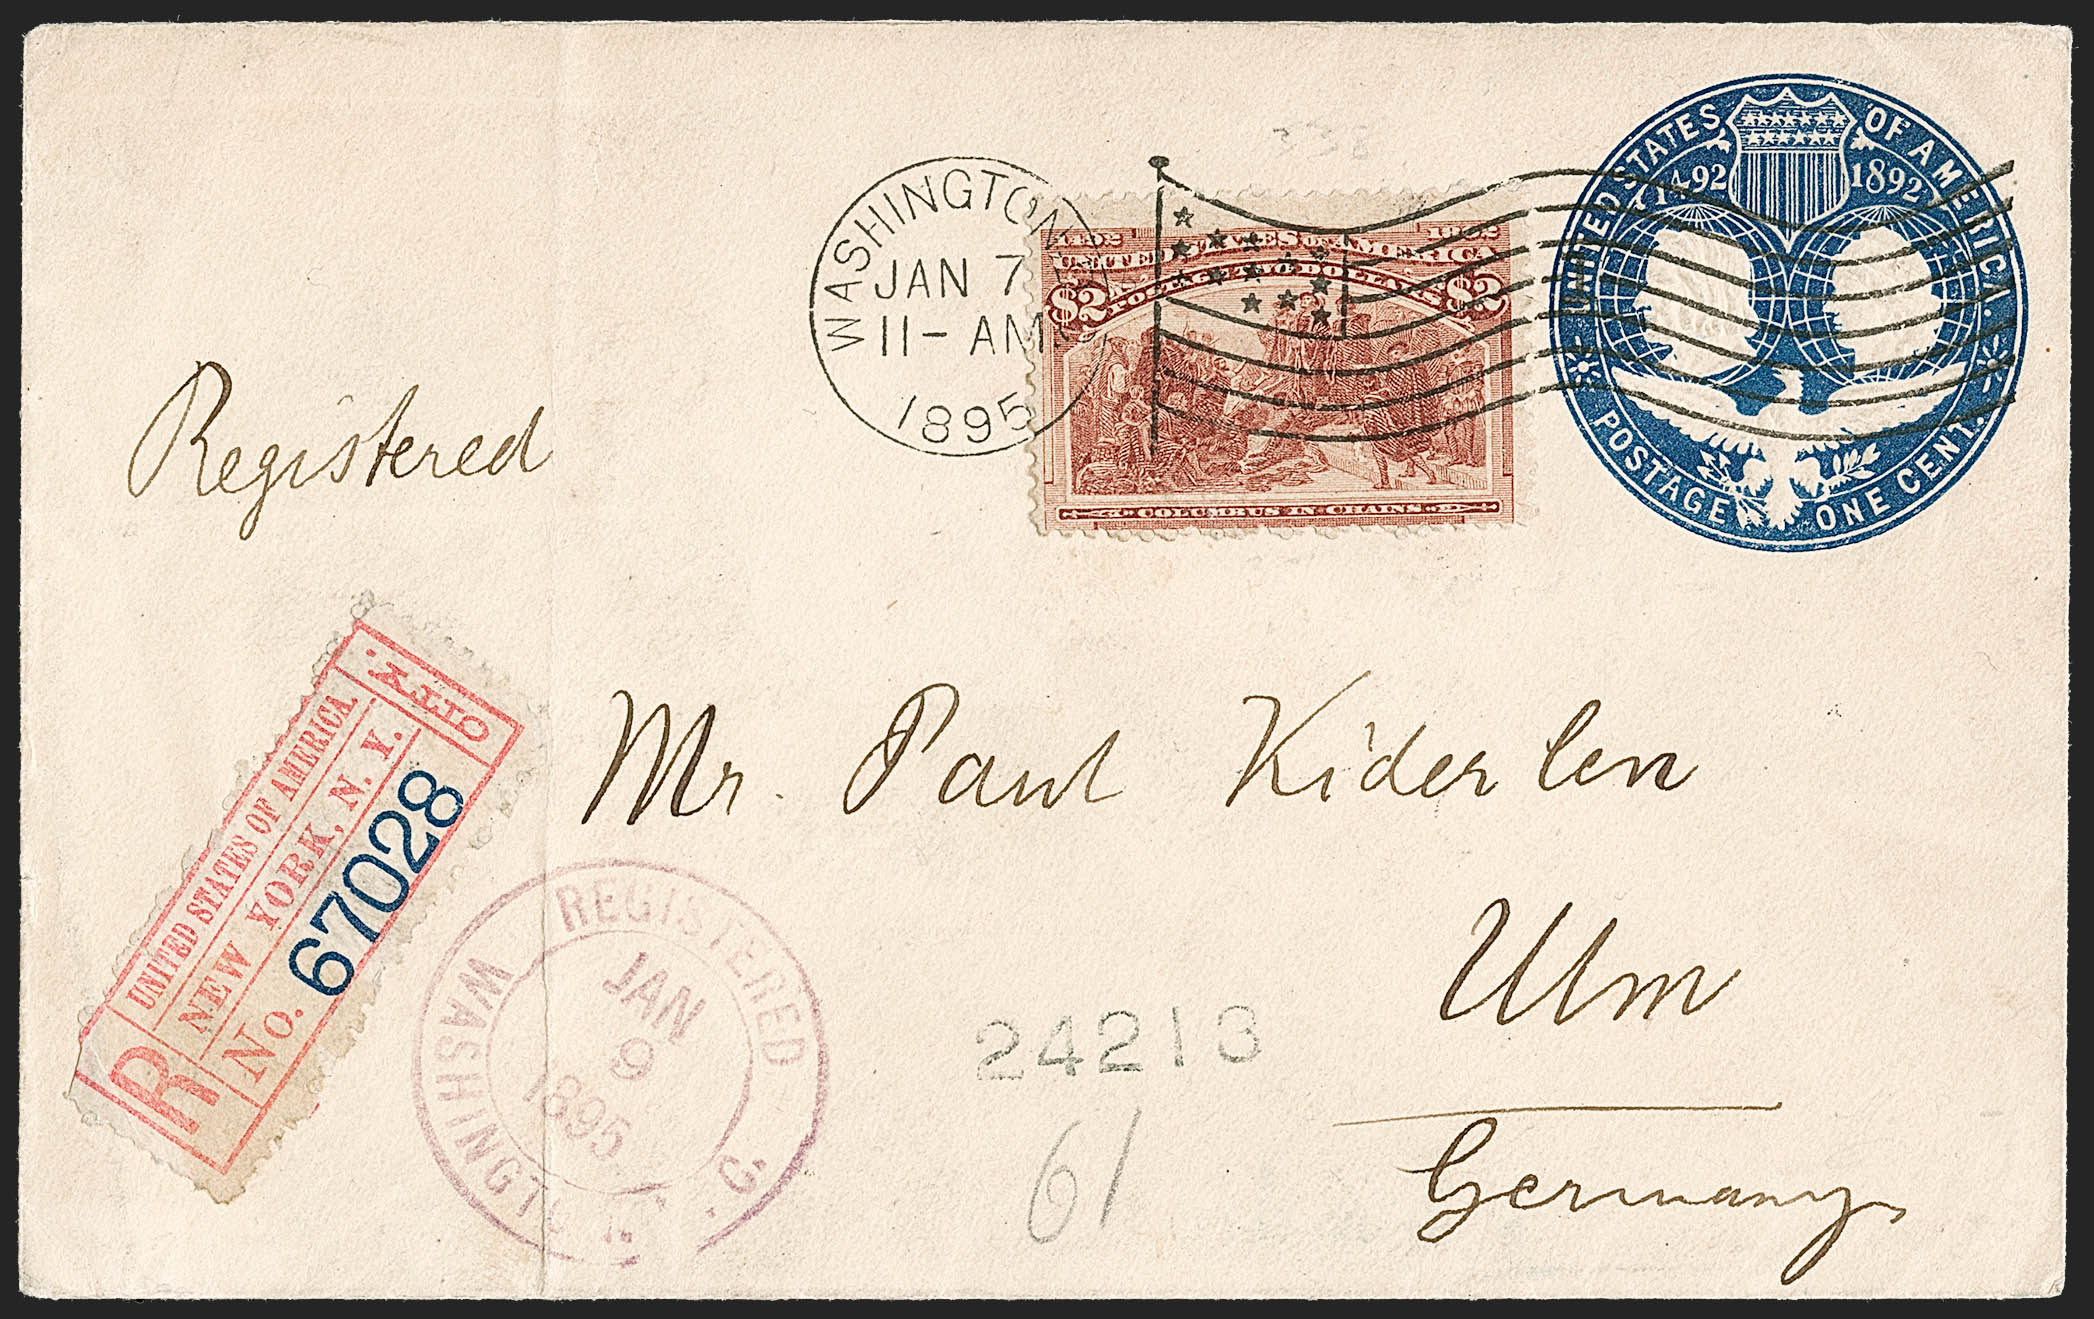 UNITED STATES OF AMERICA.
1492 1892
POSTAGE ONE CENT.
WASHINGTON
JAN 7
11-AM
1895
1492 1892
UNITED STATES OF AMERICA
$2 POSTAGE TWO DOLLARS $2
COLUMBUS IN CHAINS
Registered
CITY.
UNITED STATES OF AMERICA.
NEW YORK, N. Y.
R No. 67028
Mr. Paul Kiderlen
Ulm
Germany
REGISTERED
WASHINGTON
JAN
9
1895
24213
61